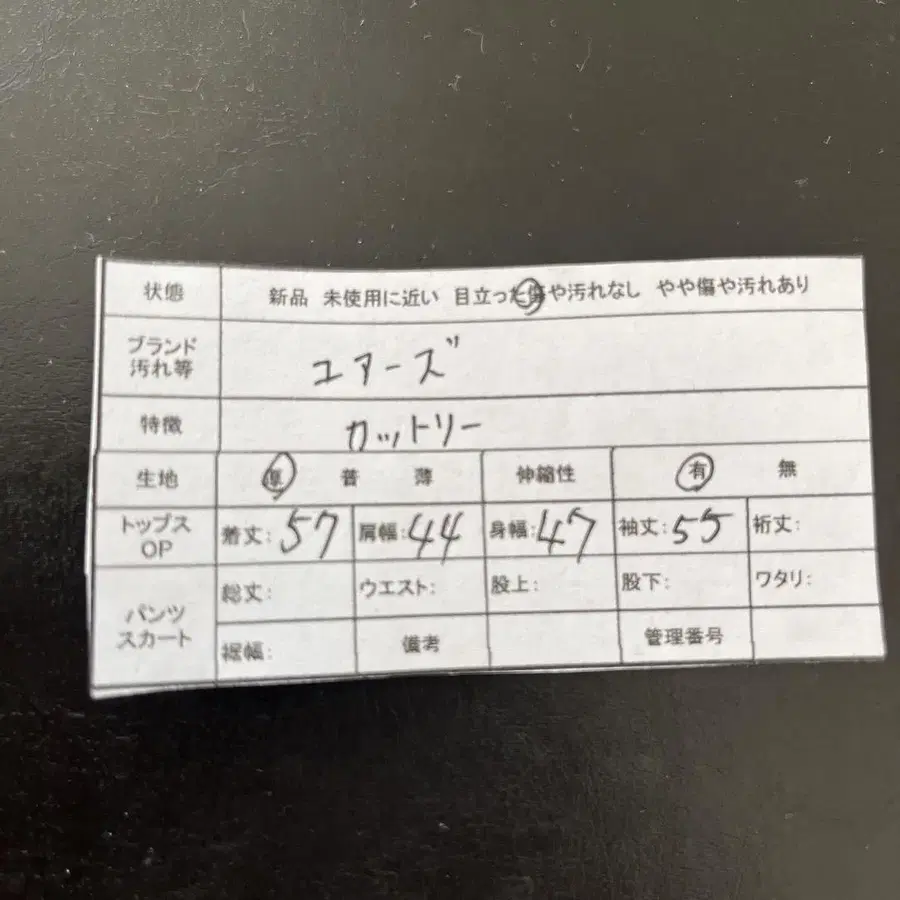 状態 新品 未使用に近い 目立った傷や汚れなし やや傷や汚れあり
ブランド
汚れ等 ユアーズ
特徴 カットリー
生地 厚 普 薄 伸縮性 有 無
トップス
OP 着丈:57 肩幅:44 身幅:47 袖丈:55 裄丈:
パンツ
スカート 総丈: ウエスト: 股上: 股下: ワタリ:
裾幅: 備考 管理番号